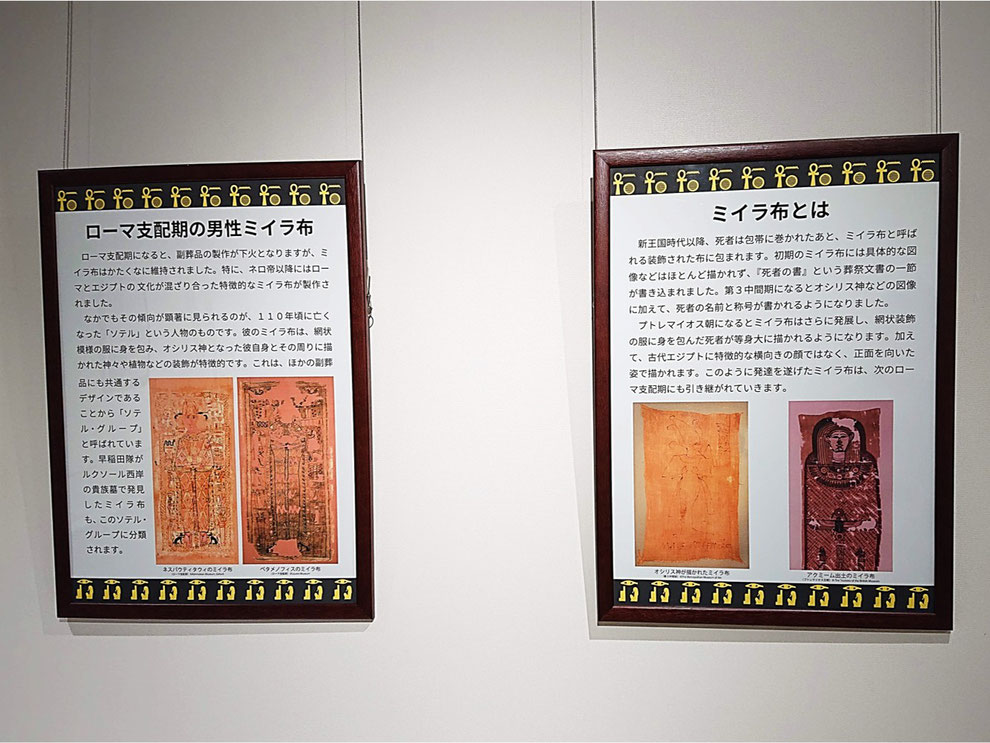 ローマ支配期の男性ミイラ布
ローマ支配期になると、副葬品の製作が下火となりますが、ミ
イラ布はかたくなに維持されました。特に、ネロ帝以降にはロー
マとエジプトの文化が混ざり合った特徴的なミイラ布が製作さ
れました。
なかでもその傾向が顕著に見られるのが、１１０年頃に亡く
なった「ソテル」という人物のものです。彼のミイラ布は、網状
模様の服に身を包み、オシリス神となった彼自身とその周りに描
かれた神々や植物などの装飾が特徴的です。これは、ほかの副葬
品にも共通する
デザインである
ことから「ソテ
ル・グループ」
と呼ばれていま
す。早稲田隊が
ルクソール西岸
の貴族墓で発見
したミイラ布
も、このソテル・
グループに分類
されます。
ネスパウティタウィのミイラ布
ペタメノフィスのミイラ布
ミイラ布とは
新王国時代以降、死者は包帯に巻かれたあと、ミイラ布と呼ば
れる装飾された布に包まれます。初期のミイラ布には具体的な図
像などはほとんど描かれず、『死者の書』という葬祭文書の一節
が書き込まれました。第３中間期になるとオシリス神などの図像
に加えて、死者の名前と称号が書かれるようになりました。
プトレマイオス朝になるとミイラ布はさらに発展し、網状装飾
の服に身を包んだ死者が等身大に描かれるようになります。加え
て、古代エジプトに特徴的な横向きの顔ではなく、正面を向いた
姿で描かれます。このように発達を遂げたミイラ布は、次のロー
マ支配期にも引き継がれていきます。
オシリス神が描かれたミイラ布
アクミーム出土のミイラ布